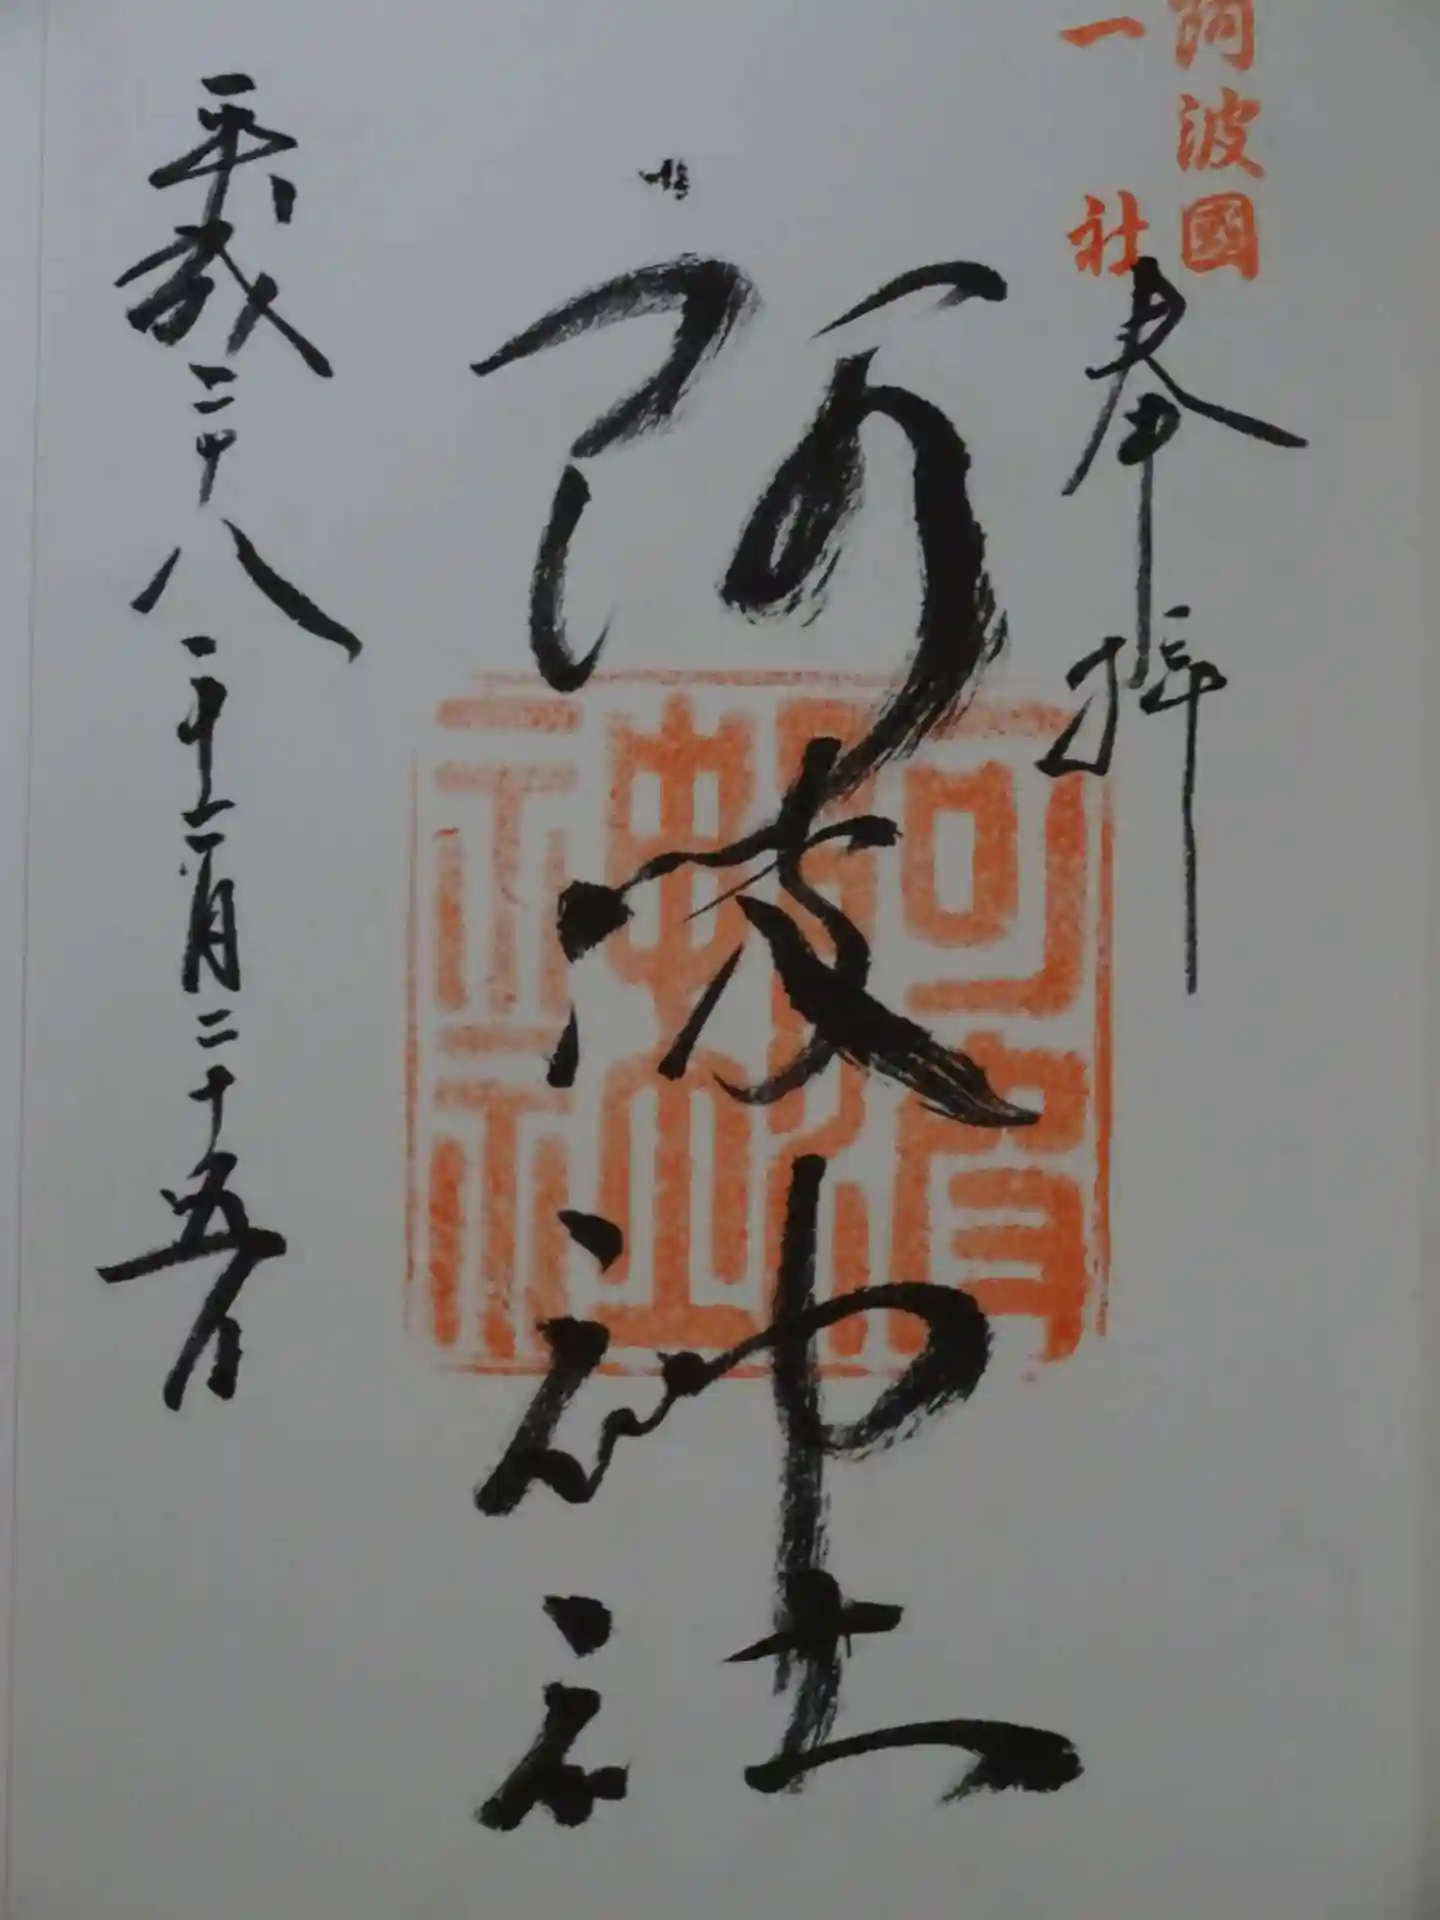 阿波國
一社
奉拝
阿波神社
平成二十八年十二月二十五日